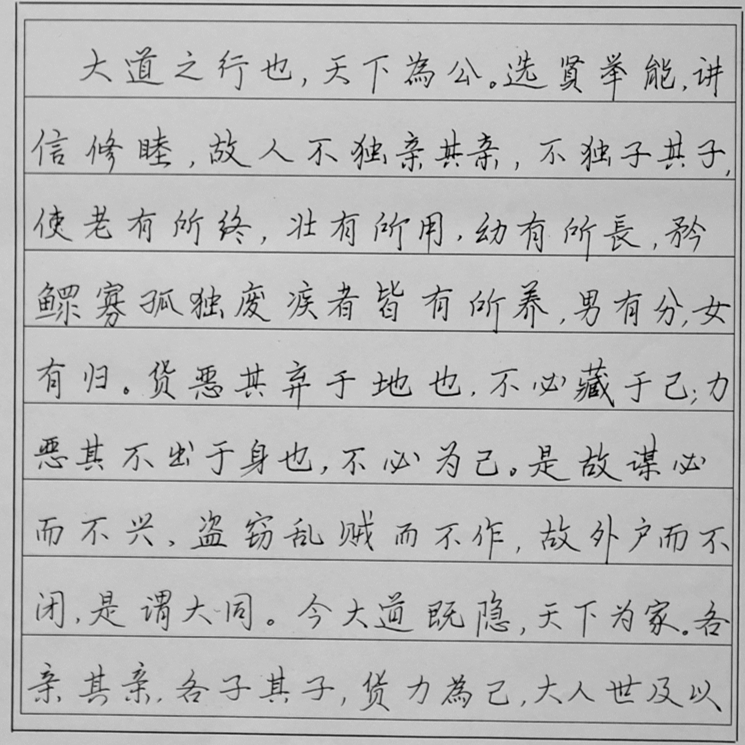 大道之行也,天下為公。选賢举能,讲
信修睦,故人不独亲其亲,不独子其子,
使老有所终,壮有所用,幼有所長,矜
鳏寡孤独废疾者皆有所养,男有分,女
有归。货恶其弃于地也,不必藏于己;力
恶其不出于身也,不必为己。是故谋必
而不兴,盗窃乱贼而不作,故外户而不
闭,是谓大同。今大道既隐,天下为家。各
亲其亲,各子其子,货力為己,大人世及以